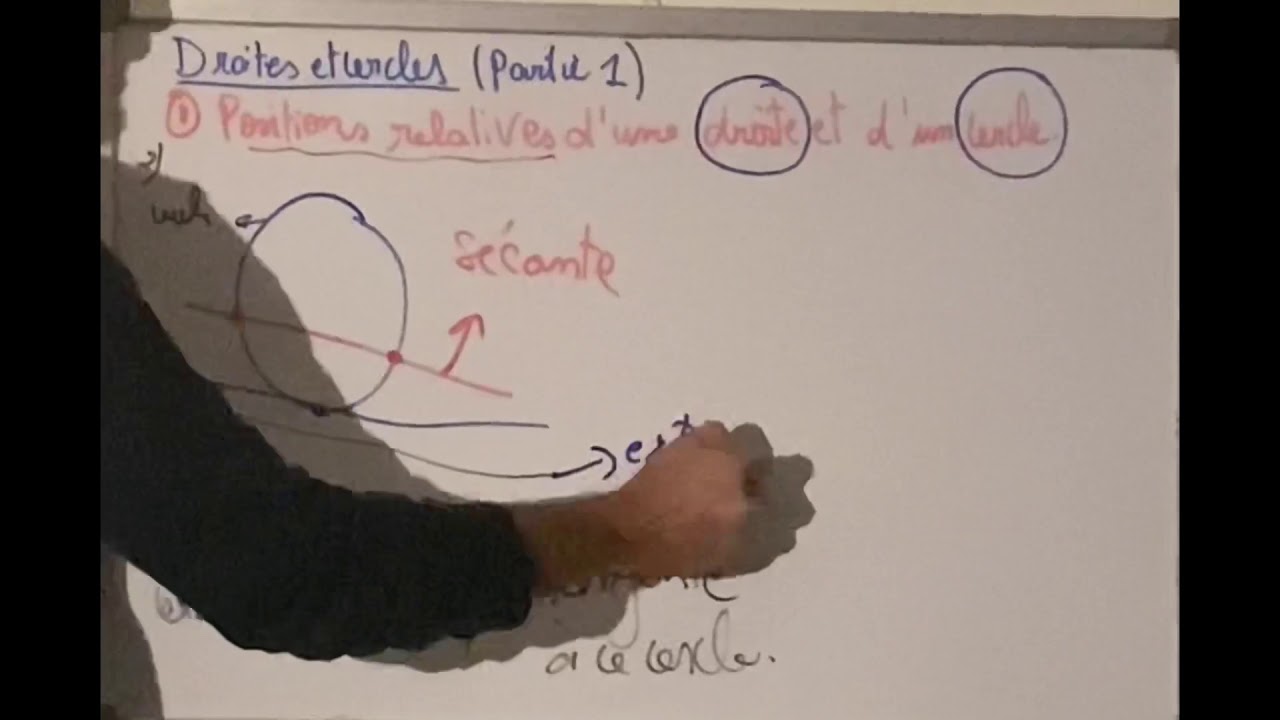 Droites et cercles (Partie 1)
① Positions relatives d'une droite et d'un cercle
Sécante
ext
à ce cercle.